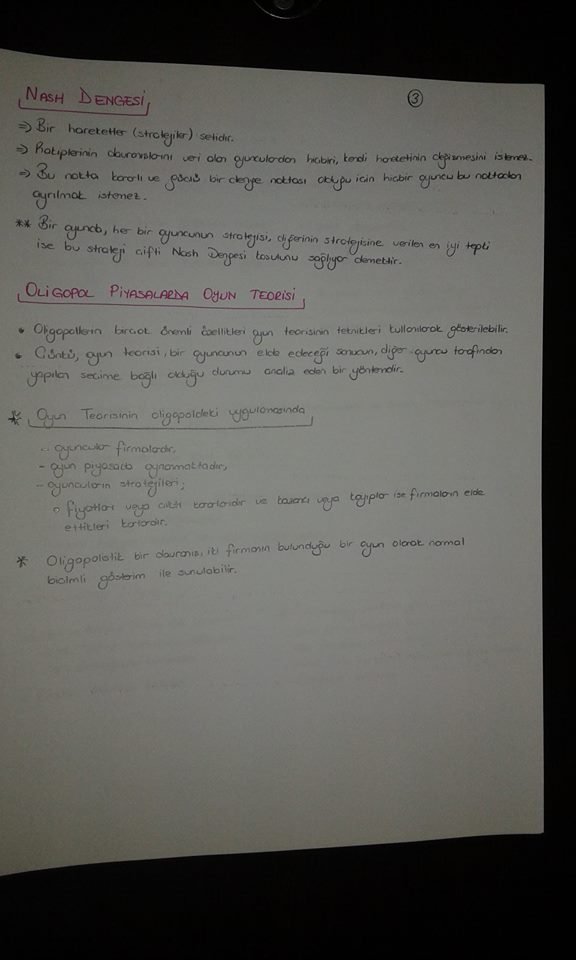 NASH DENGESİ
3
⇒ Bir hareketler (stratejiler) setidir.
⇒ Rakiplerinin davranışlarını veri alan oyunculardan hiçbiri, kendi hareketinin değişmesini istemez.
⇒ Bu nokta kararlı ve güçlü bir denge noktası olduğu için hiçbir oyuncu bu noktadan
ayrılmak istemez.
** Bir oyunda, her bir oyuncunun stratejisi, diğerinin stratejisine verilen en iyi tepki
ise bu strateji çifti Nash Dengesi koşulunu sağlıyor demektir.
OLİGOPOL PİYASALARDA OYUN TEORİSİ
• Oligopollerin birçok önemli özellikleri oyun teorisinin teknikleri kullanılarak gösterilebilir.
• Çünkü, oyun teorisi, bir oyuncunun elde edeceği sonucun, diğer oyuncu tarafından
yapılan seçime bağlı olduğu durumu analiz eden bir yöntemdir.
* Oyun Teorisinin oligopoldeki uygulamasında
- oyuncular firmalardır,
- oyun piyasada oynanmaktadır,
- oyuncuların stratejileri;
o fiyatları veya çıktı kararlarıdır ve kazanç veya kayıplar ise firmaların elde
ettikleri karlardır.
* Oligopolistik bir davranış, iki firmanın bulunduğu bir oyun olarak normal
biçimli gösterim ile sunulabilir.